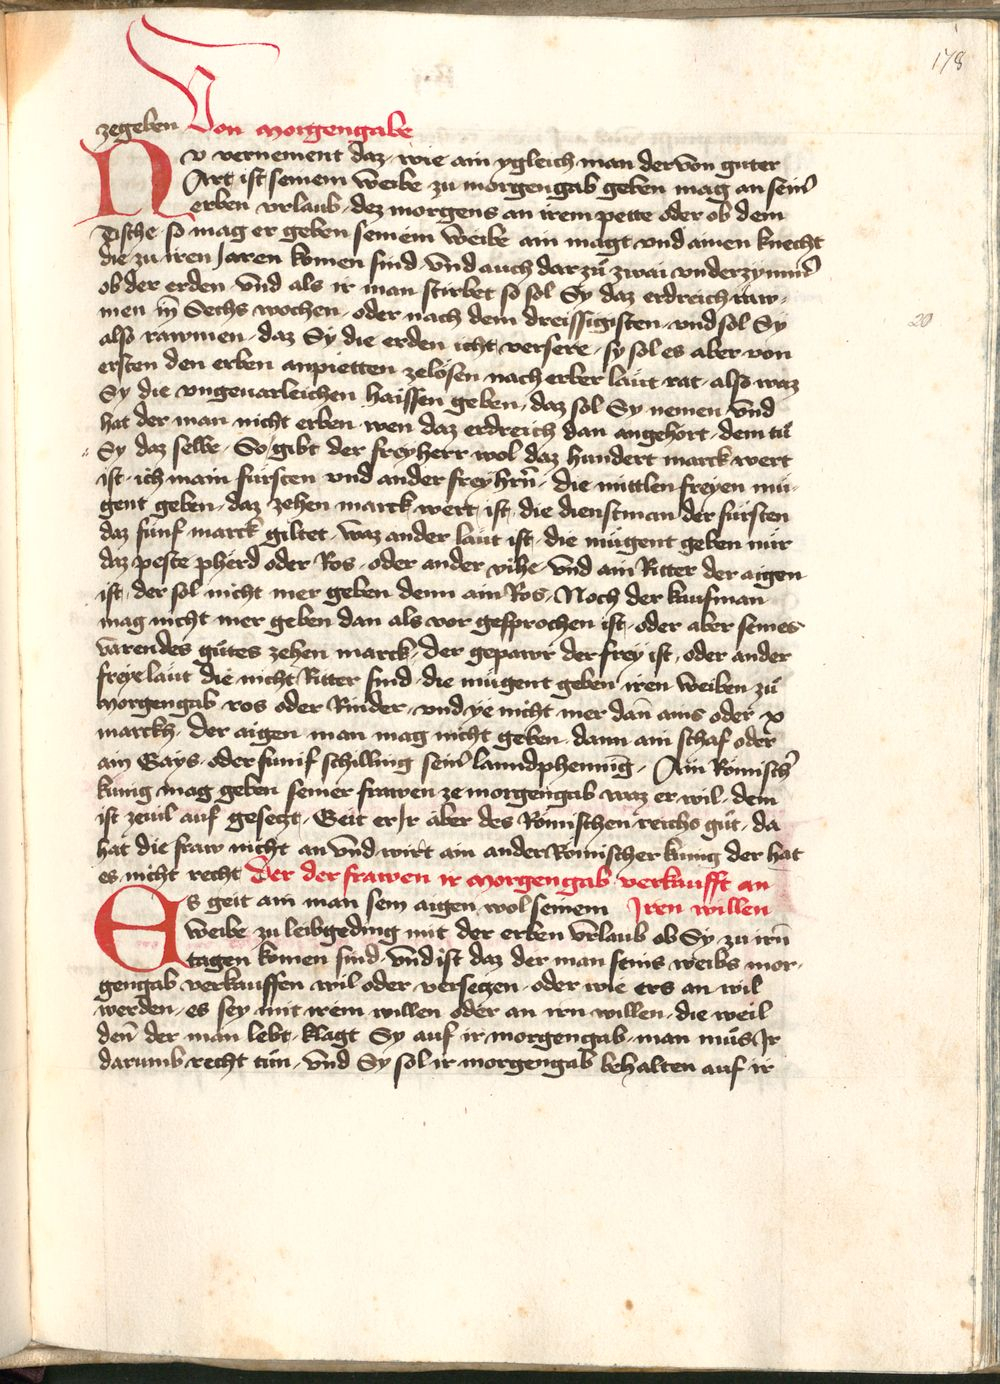 178
zegeben Von morgengabe
Nv vernement daz · wie ain ygleich man der von guter
Art ist seinem weibe zu morgengab geben mag an sein̄
erben vrlaub · dez morgens an irem pette oder ob dem
Tische · so mag er geben seinem weibe ain magt vnd ainen knecht
die zu iren Jaren komen sind · vnd auch darzů zwai vnderzym̄er
ob der erden · vnd als ir man stirbet so sol Sy daz erdreich raw-
men in Sechs wochen · oder nach dem dreissigisten · vnd sol Sy
also rawmen · daz Sy die erden icht versere · sy sol es aber von
ersten den erben anpietten zelösen nach erber läut rat · also waz
Sy die vngeuarleichen haissen geben · daz sol Sy nemen vnd
hat der man nicht erben · wen daz erdreich dan angehört · dem tů
Sy daz selbe · So gibt der freyherr wol daz hundert marck wert
ist · ich main fürsten vnd ander freyhrn̄ · die mittlen freyen mü-
gent geben · daz zehen marck wert ist · die dienstman der fürsten
daz funf marck giltet · waz ander läut ist · die mügent geben nür
daz peste pherd oder Ros · oder ander vihe · vnd ain Ritter der aigen
ist · der sol nicht mer geben denn ain Ros · Noch der kaufman
mag nicht mer geben dan als vor gesprochen ist · oder aber seines
varendes gůtes zehen marck · der gepawr der frey ist · oder ander
freye läut die nicht Ritter sind · die mügent geben iren weiben zů
morgengab ros oder Rinder · vnd ye nicht mer dan̄ ains oder x
marckh · der aigen man mag nicht geben · dann ain schaf oder
ain Gays · oder funif schilling sein̄ lanndphenning · Ain Römisch̄
kunig mag geben seiner frawen ze morgengab waz er wil · dem
ist zeuil auf gesetzt · Geit er Ir aber des Römischen reichs gůt · da
hat die fraw nicht an vnd wirt ain ander Römischer kunig der hat
es nicht recht Der der frawen ir morgengab verkaufft an
Es geit ain man sein aigen wol seinem Iren willen
weibe zu leibgeding mit der erben vrlaub ob Sy zu irn̄
tagen komen sind · vnd ist daz der man seins weibs mor-
gengab verkauffen wil oder versetzen · oder wie ers an wil
werden · es sey mit irem willen oder an irn willen · die weil
den̄ der man lebt · klagt Sy auf ir morgengab · man můs Ir
darumb recht tůn · vnd Sy sol ir morgengab behalten auf ir
20